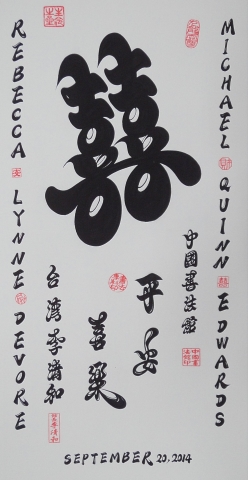 REBECCA LYNNE DEVORE
囍
MICHAEL QUINN EDWARDS
中國書法館
平安
喜樂
台湾李清和
SEPTEMBER 20, 2014